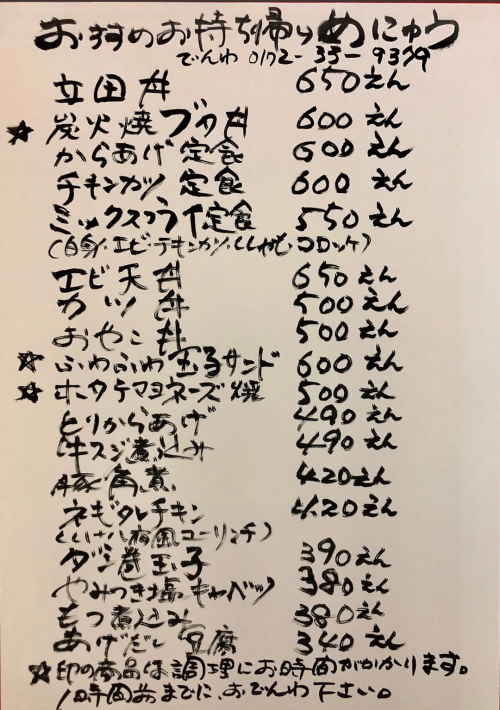 おすすめお持ち帰りめにゅう
でんわ 0172-33-9379
立田丼 650えん
☆炭火焼ブタ丼 600えん
からあげ定食 600えん
チキンカツ定食 600えん
ミックスフライ定食 550えん
(白身・エビ・チキンカツ・ししゃも・コロッケ)
エビ天丼 650えん
カツ丼 500えん
おやこ丼 500えん
☆ふわふわ玉子サンド 600えん
☆ホタテマヨネーズ焼 500えん
とりからあげ 490えん
牛スジ煮込み 490えん
豚角煮 420えん
ネギタレチキン 420えん
風ユーリンチ)
ダシ巻玉子 390えん
やみつき塩キャベツ 380えん
もつ煮込み 380えん
あげだし豆腐 340えん
☆印の商品は調理にお時間がかかります。
1時間前までに、おでんわ下さい。